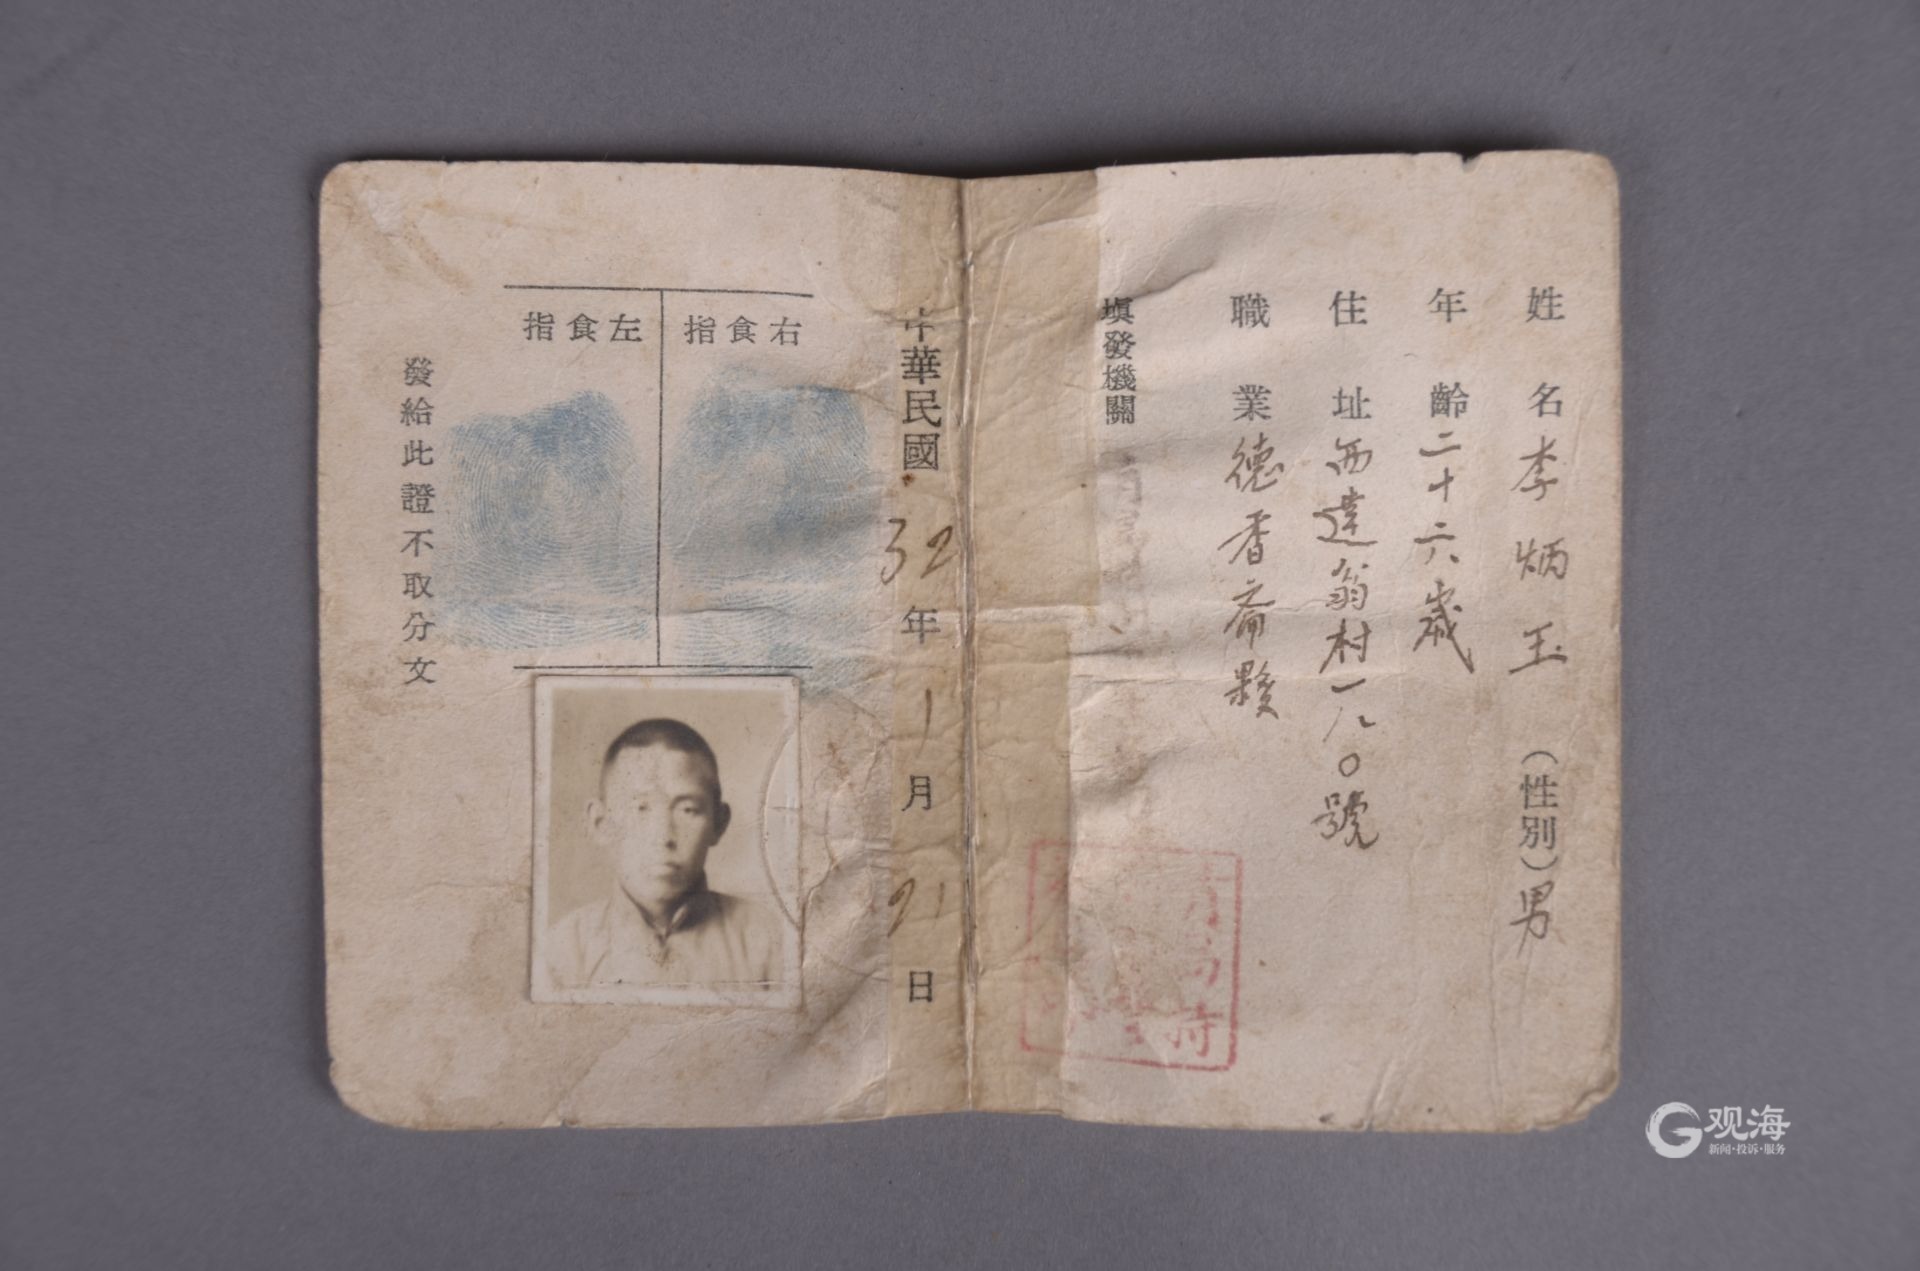 姓名李炳玉（性別）男
年齡二十六歲
住址西達翁村一八〇號
職業德香齋夥
填發機關
中華民國32年1月21日
右食指
左食指
發給此證不取分文
观海
新闻·投诉·服务